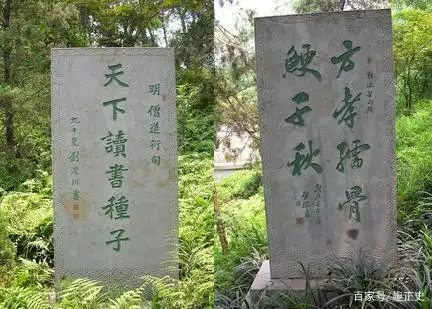 明僧道衍句
天下讀書種子
九十叟劉浚川書
方孝孺骨
鯁千秋
百家号/趣正史